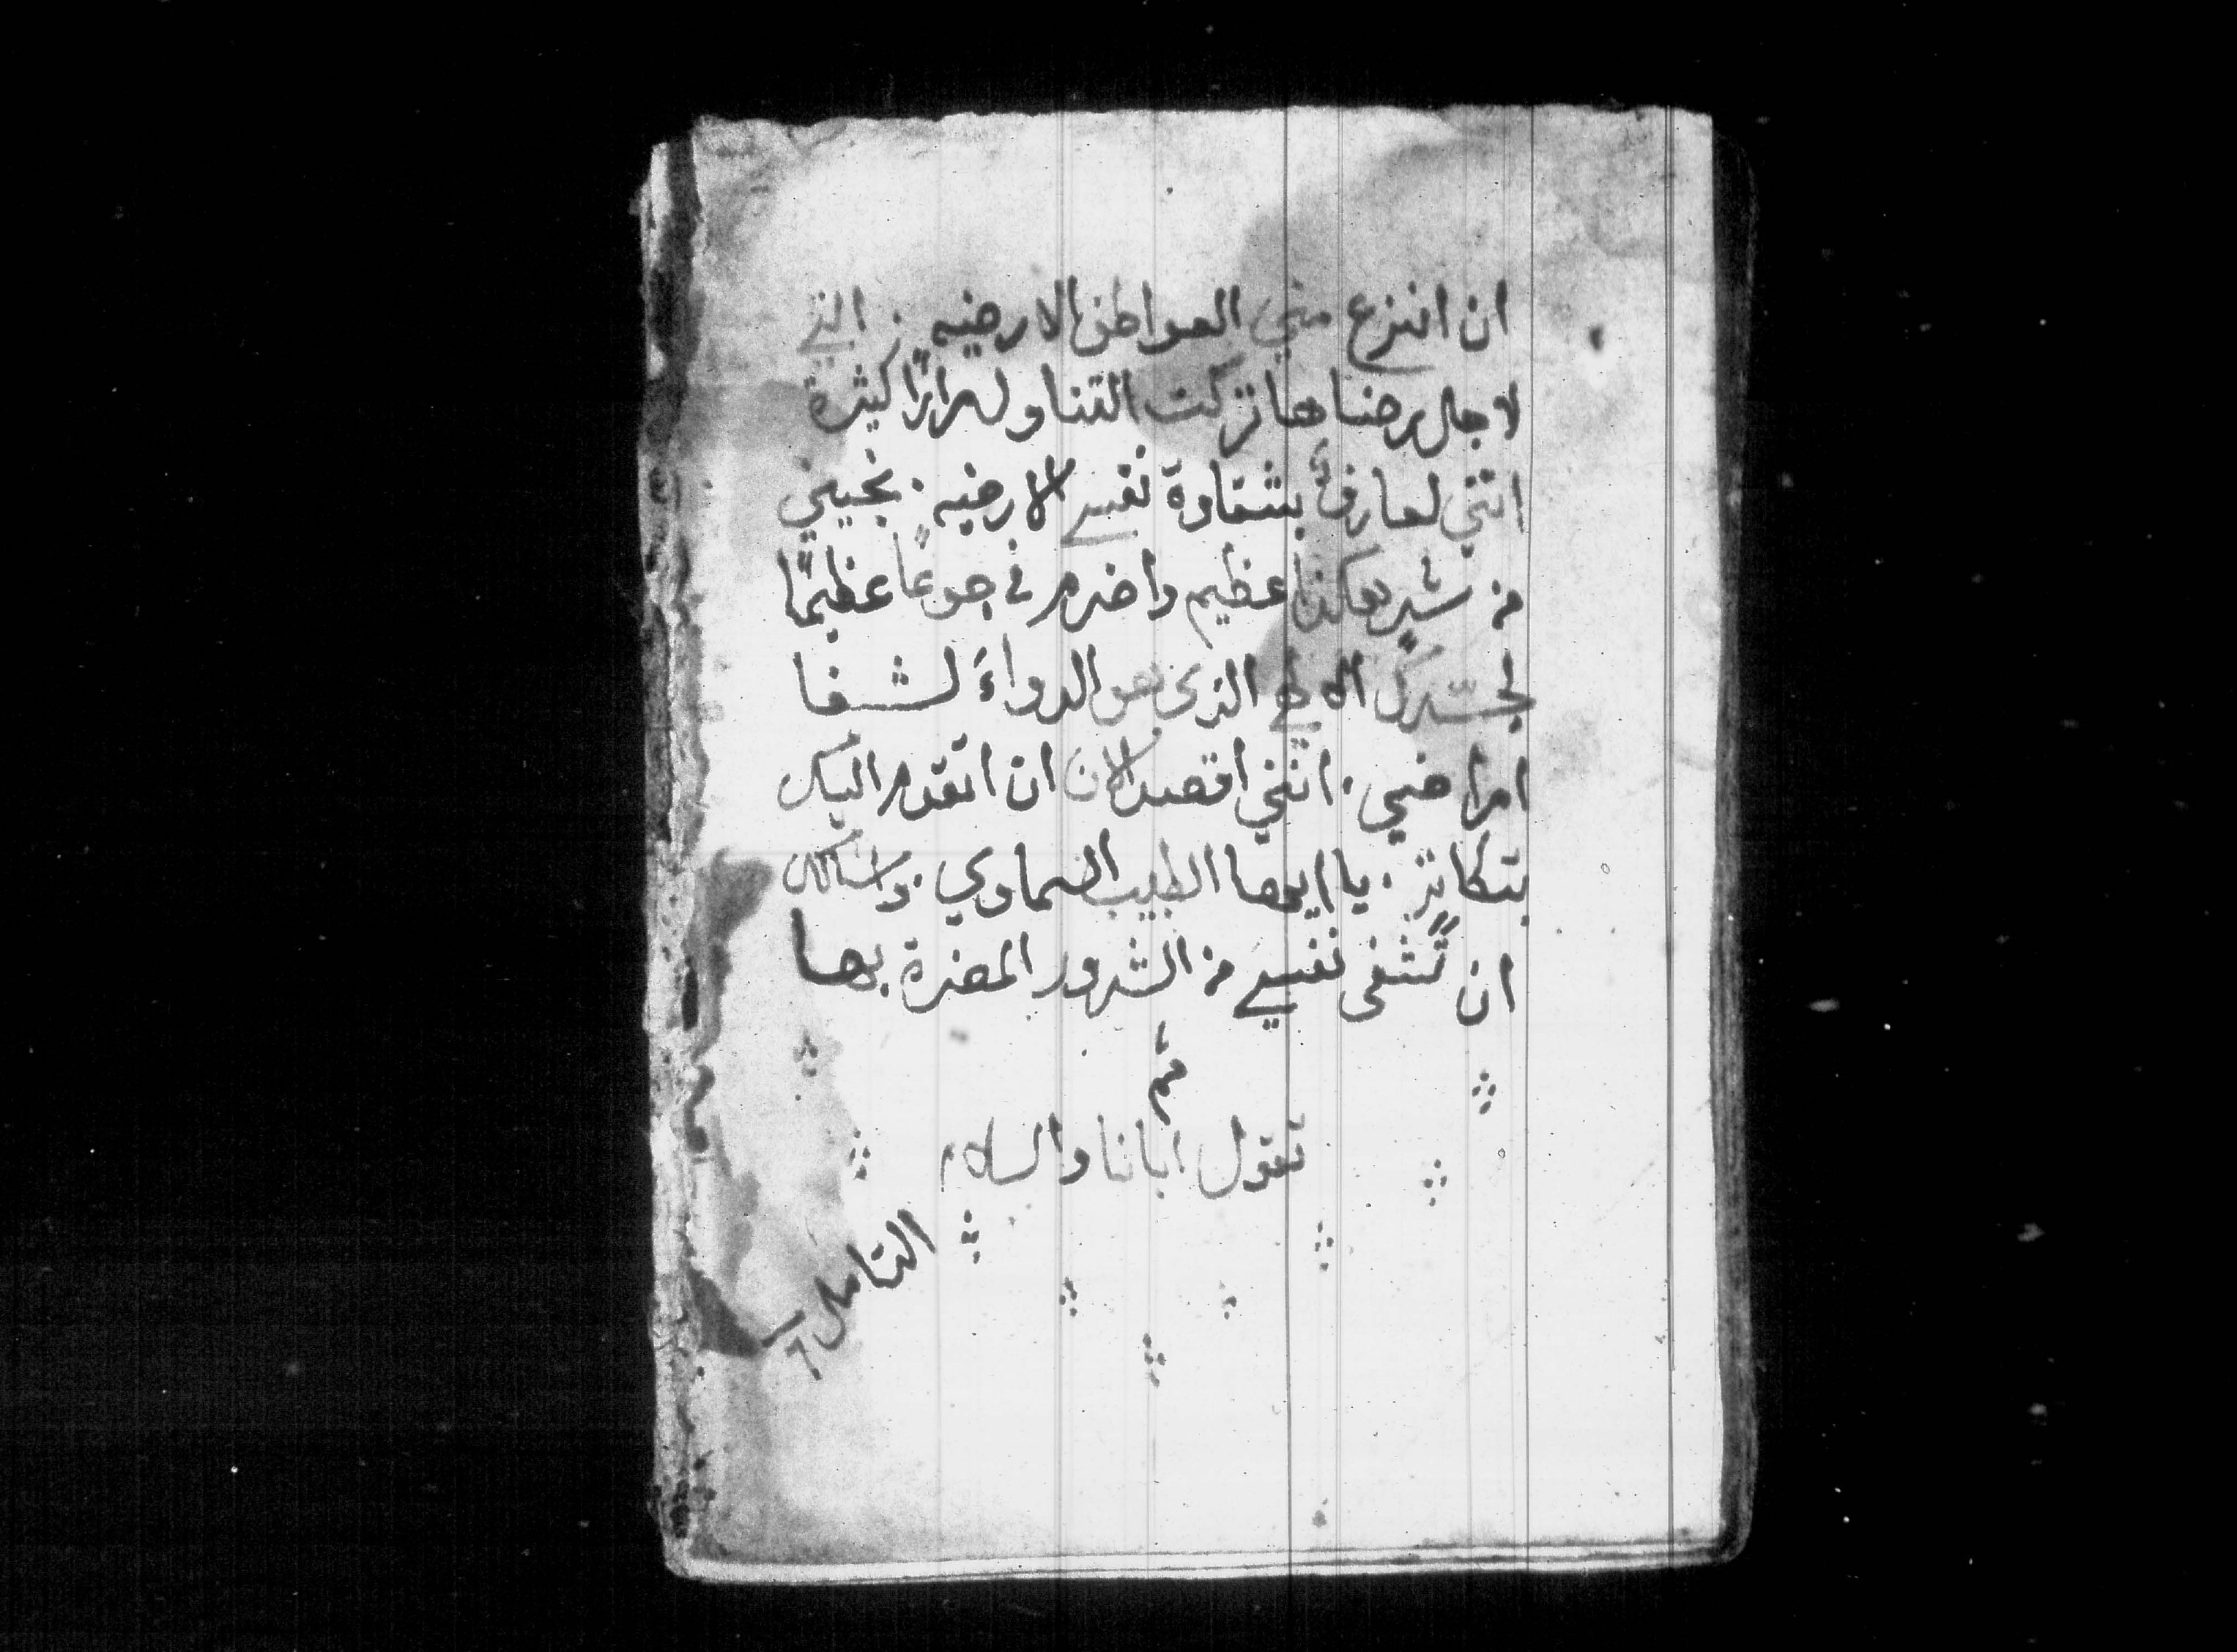 ان انزع مني العواطف الارضيه . التي
لاجل رضاها تركت التناول مرارًا كثيرة
انني لعارفٌ بشقاوة نفسي الارضيه . نجيني
من شرٍ هكذا عظيم واضرم فيَّ جوعًا عظيمًا
لجسدك الالهي الذي هو الدواءَ لشفا
امراضي . انني اقصد الان ان اتقدم اليك
بتكاثر . يا ايها الطبيب السماوي . واسالك
ان تشفى نفسي من الشرور المضرة بها
ثم
تقول ابانا والسلام
التامل